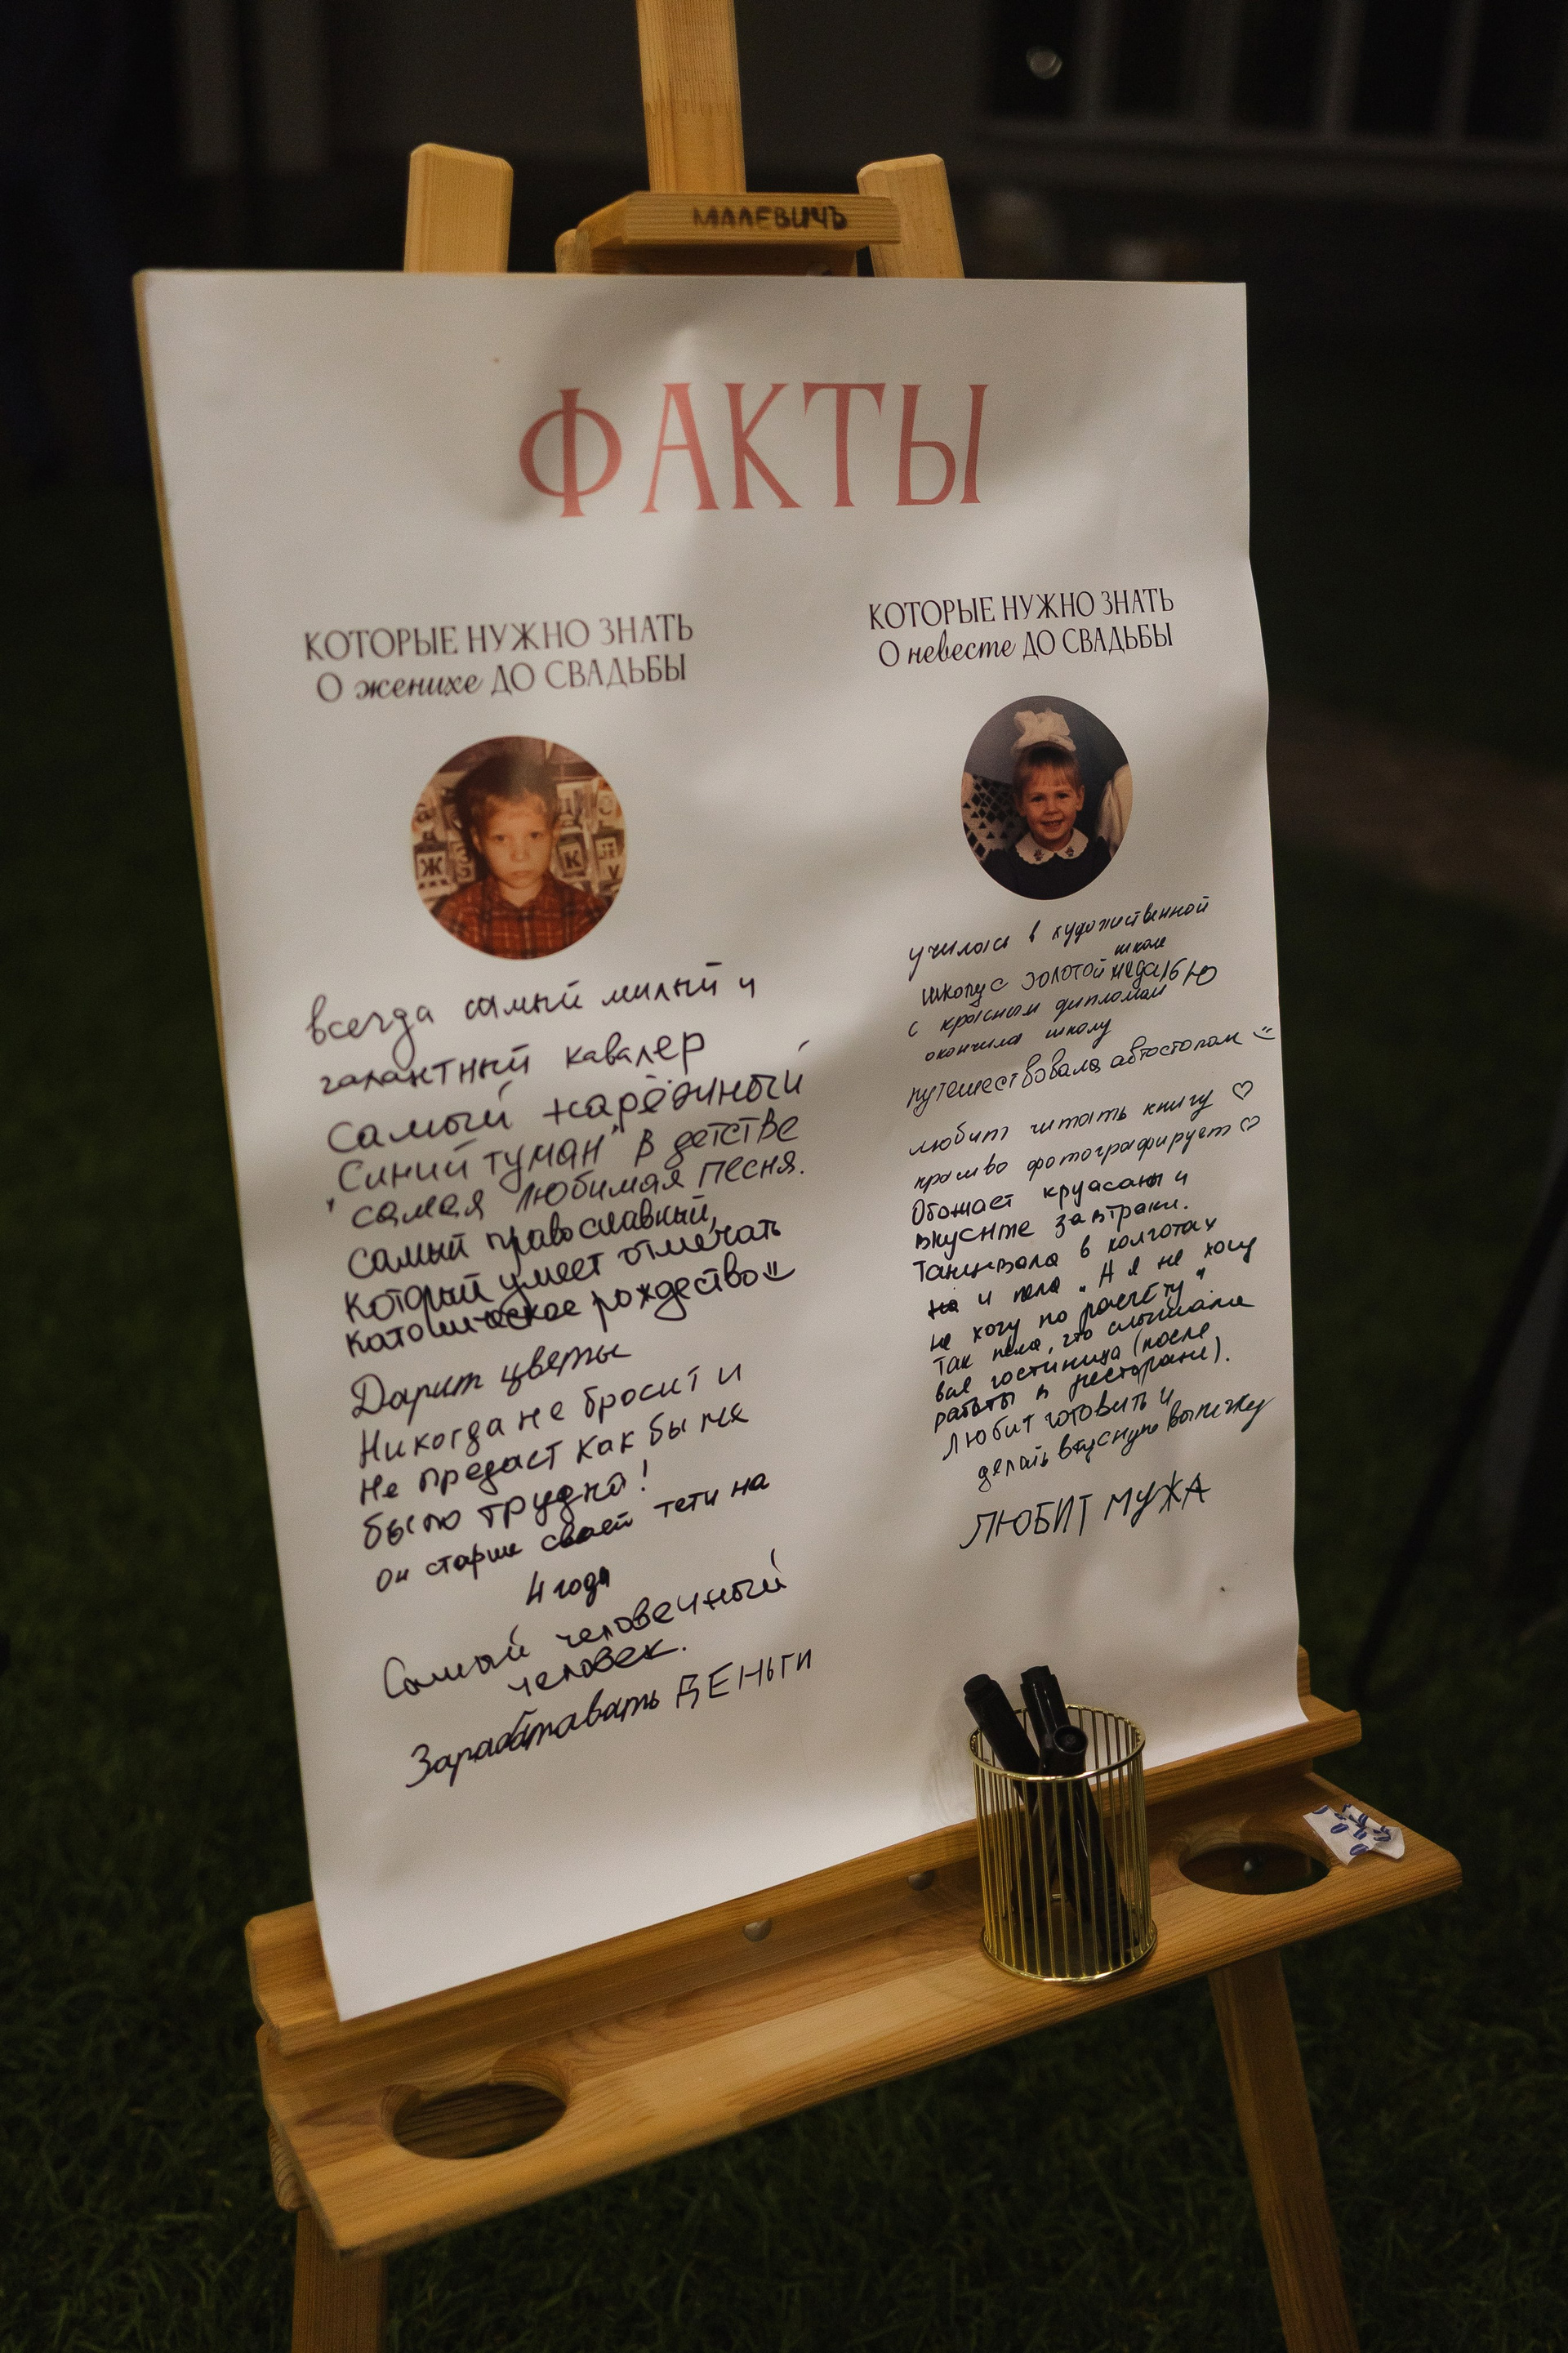 МАЛЕВИЧЪ
ФАКТЫ
КОТОРЫЕ НУЖНО ЗНАТЬ
О женихе ДО СВАДЬБЫ
Ж
К
всегда самый милый и
галантный кавалер
Самый нарядный
"Синий туман" в детстве
самая любимая песня.
самый православный,
который умеет отмечать
католическое рождество
Дарит цветы
Никогда не бросит и
не предаст как бы не
было трудно!
он старше своей тети на
4 года
Самый человечный
человек.
Зарабатывать ДЕНЬГИ
КОТОРЫЕ НУЖНО ЗНАТЬ
О невесте ДО СВАДЬБЫ
училась в художественной
школе
школу с золотой медалью
с красным дипломом
окончила школу
путешествовала автостопом
любит читать книгу ♡
красиво фотографирует ♡
Обожает круасаны и
вкусные завтраки.
Танцевала в колготах
на и пела "А я не хочу
не хочу по расчёту"
Так пела, что слышала
вся гостиница (после
работы в ресторане).
Любит готовить и
делать вкусную выпечку
ЛЮБИТ МУЖА